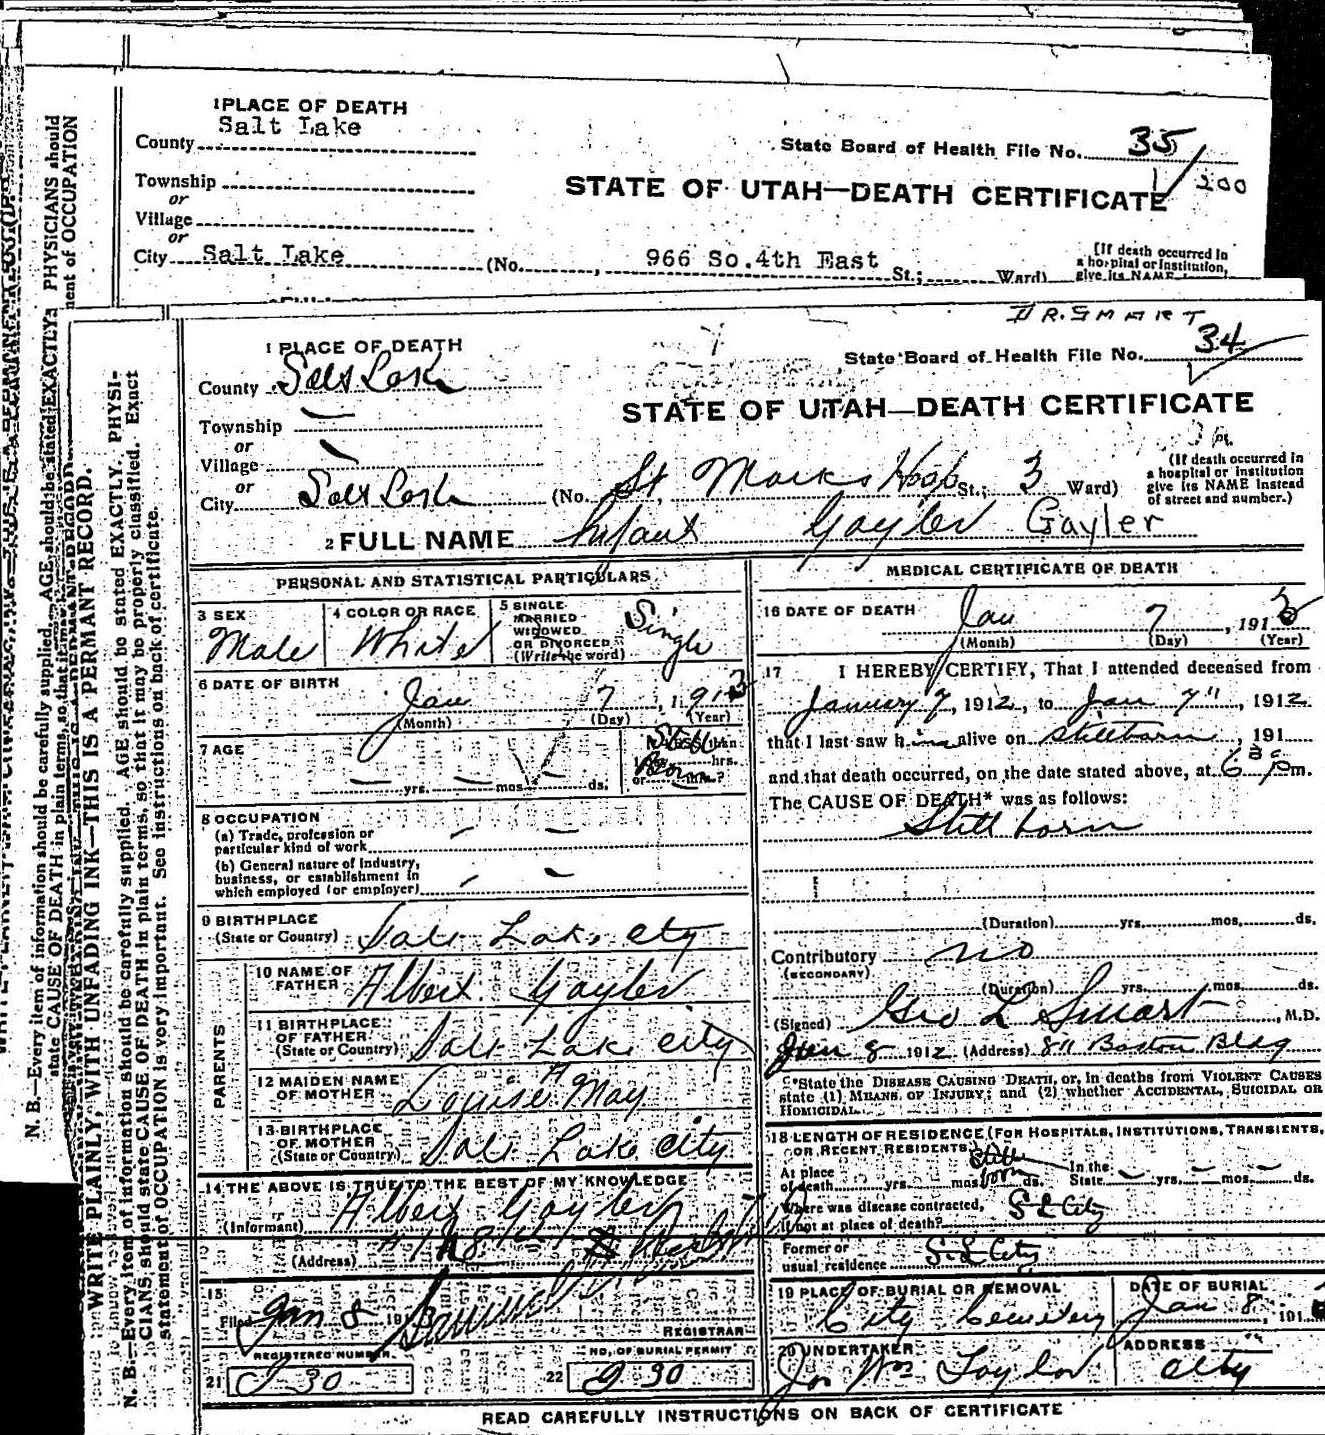 1 PLACE OF DEATH
Salt Lake
County
State Board of Health File No. 35
1/200
Township
or
STATE OF UTAH—DEATH CERTIFICATE
Village
or
City Salt Lake (No. , 966 So.4th East St.; Ward)
(If death occurred in
a hospital or institution,
give its NAME
DR. SMART
1 PLACE OF DEATH
County Salt Lake
State Board of Health File No. 34
STATE OF UTAH—DEATH CERTIFICATE
Township
or
Village
or
City Salt Lake (No. St. Marks Hosp St.; 3 Ward)
(If death occurred in
a hospital or institution
give its NAME instead
of street and number.)
2 FULL NAME Infant Gayler Gayler
PERSONAL AND STATISTICAL PARTICULARS
3 SEX
Male
4 COLOR OR RACE
White
5 SINGLE
MARRIED
WIDOWED
OR DIVORCED
(Write the word)
Single
6 DATE OF BIRTH
Jan 7, 1913
(Month) (Day) (Year)
7 AGE
yrs. mos. ds.
If LESS than
hrs.
or min.?
Still
Born
8 OCCUPATION
(a) Trade, profession or
particular kind of work
(b) General nature of industry,
business, or establishment in
which employed (or employer)
9 BIRTHPLACE
(State or Country) Salt Lake City
PARENTS
10 NAME OF
FATHER Albert Gayler
11 BIRTHPLACE
OF FATHER
(State or Country) Salt Lake City
12 MAIDEN NAME
OF MOTHER Louise A May
13 BIRTHPLACE
OF MOTHER
(State or Country) Salt Lake City
14 THE ABOVE IS TRUE TO THE BEST OF MY KNOWLEDGE
(Informant) Albert Gayler
(Address)
15
Filed Jan 8 191
REGISTRAR
REGISTERED NUMBER
21 J 30
NO. OF BURIAL PERMIT
22 J 30
MEDICAL CERTIFICATE OF DEATH
16 DATE OF DEATH
Jan 7, 1913
(Month) (Day) (Year)
17 I HEREBY CERTIFY, That I attended deceased from
January 7, 1912, to Jan 7", 1912
that I last saw him alive on stillborn, 191
and that death occurred, on the date stated above, at 6 30 pm.
The CAUSE OF DEATH* was as follows:
Still born
(Duration) yrs. mos. ds.
Contributory no
(SECONDARY)
(Duration) yrs. mos. ds.
(Signed) Geo L Smart, M.D.
Jan 8 1912 (Address) 811 Boston Bldg
*State the DISEASE CAUSING DEATH, or, in deaths from VIOLENT CAUSES
state (1) MEANS OF INJURY; and (2) whether ACCIDENTAL, SUICIDAL OR
HOMICIDAL.
18 LENGTH OF RESIDENCE (FOR HOSPITALS, INSTITUTIONS, TRANSIENTS,
OR RECENT RESIDENTS)
At place
of death yrs. mos. ds.
Still
born
In the
State yrs. mos. ds.
Where was disease contracted,
if not at place of death? S L City
Former or
usual residence S. L. City
19 PLACE OF BURIAL OR REMOVAL
City Cemetery
DATE OF BURIAL
Jan 8, 191
20 UNDERTAKER
Jos Wm Taylor
ADDRESS
City
READ CAREFULLY INSTRUCTIONS ON BACK OF CERTIFICATE
WRITE PLAINLY, WITH UNFADING INK—THIS IS A PERMANT RECORD.
N. B.—Every item of information should be carefully supplied. AGE should be stated EXACTLY. PHYSI-
CIANS should state CAUSE OF DEATH in plain terms, so that it may be properly classified. Exact
statement of OCCUPATION is very important. See instructions on back of certificate.
N. B.—Every item of information should be carefully supplied. AGE should be stated EXACTLY. PHYSICIANS should
state CAUSE OF DEATH in plain terms, so that it
ment of OCCUPATION